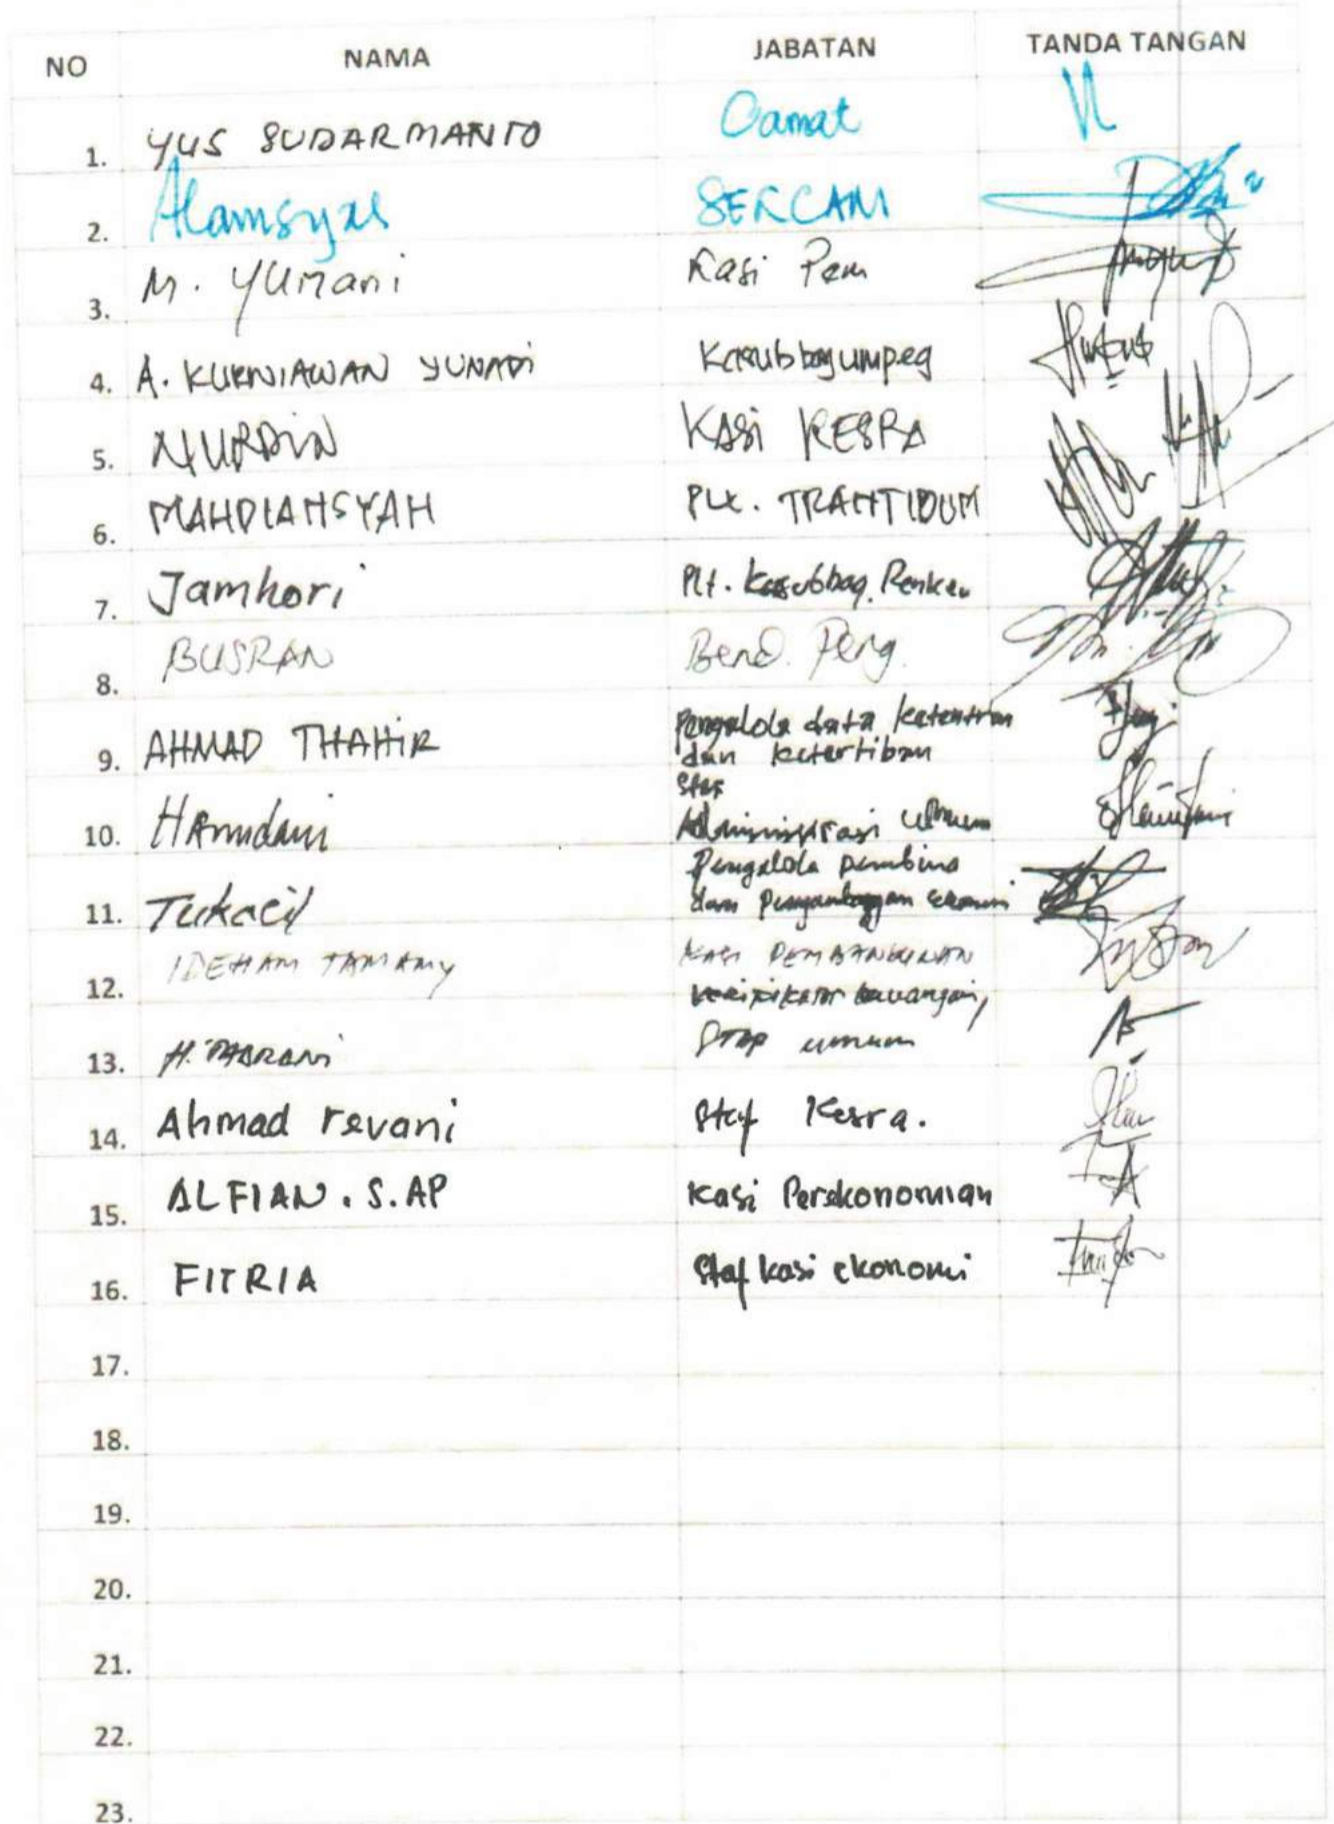 NO NAMA JABATAN TANDA TANGAN
1. YUS SUDARMANTO Camat
2. Alamsyah SEKCAM
3. M. YUMani Kasi Pem
4. A. KURNIAWAN YUNADi Kasubbagumpeg
5. NURDiN KASi KESRA
6. MAHDIANSYAH PLT. TRANTIBUM
7. Jamhori Plt. Kasubbag. Renkeu
8. BUSRAN Bend. Peng.
9. AHMAD THAHiR Pengelola data ketentraman
dan ketertiban
Staf
10. HAmdani Administrasi Umum
Pengelola pembina
11. Tukacil dan Pengembangan ekonomi
12. IDEHAM TAMAMY KASI PEMBANGUNAN
Veripikator keuangan,
13. H. Staf umum
14. Ahmad revani Staf Kesra.
15. ALFIAN. S.AP Kasi Perekonomian
16. FITRIA Staf kasi ekonomi
17.
18.
19.
20.
21.
22.
23.